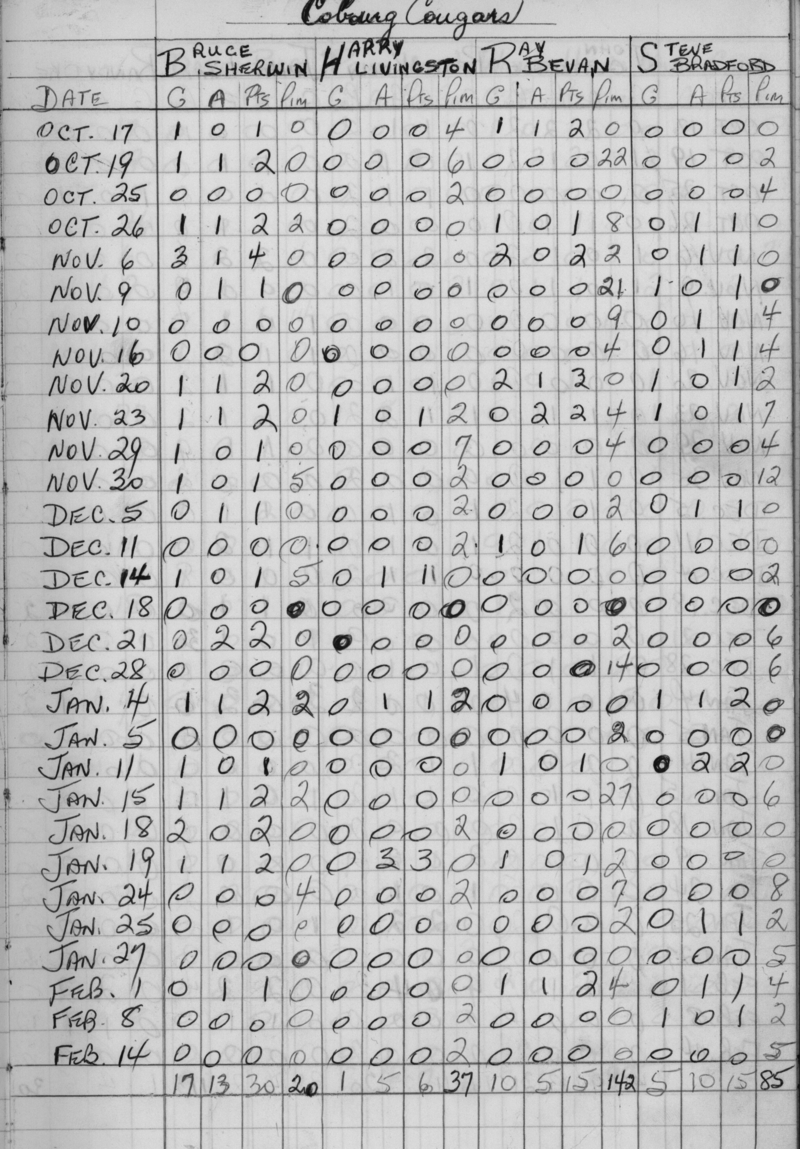 Cobourg Cougars
BRUCE SHERWIN HARRY LIVINGSTON RAY BEVAN STEVE BRADFORD
DATE G A Pts Pim G A Pts Pim G A Pts Pim G A Pts Pim
OCT. 17 1 0 1 0 0 0 0 4 1 1 2 0 0 0 0 0
OCT. 19 1 1 2 0 0 0 0 6 0 0 0 22 0 0 0 2
OCT. 25 0 0 0 0 0 0 0 2 0 0 0 0 0 0 0 4
OCT. 26 1 1 2 2 0 0 0 0 1 0 1 8 0 1 1 0
NOV. 6 3 1 4 0 0 0 0 0 2 0 2 2 0 1 1 0
NOV. 9 0 1 1 0 0 0 0 0 0 0 0 21 1 0 1 0
NOV. 10 0 0 0 0 0 0 0 0 0 0 0 9 0 1 1 4
NOV. 16 0 0 0 0 0 0 0 0 0 0 0 4 0 1 1 4
NOV. 20 1 1 2 0 0 0 0 0 2 1 3 0 1 0 1 2
NOV. 23 1 1 2 0 1 0 1 2 0 2 2 4 1 0 1 7
NOV. 29 1 0 1 0 0 0 0 7 0 0 0 4 0 0 0 4
NOV. 30 1 0 1 5 0 0 0 2 0 0 0 0 0 0 0 12
DEC. 5 0 1 1 0 0 0 0 2 0 0 0 2 0 1 1 0
DEC. 11 0 0 0 0 0 0 0 2 1 0 1 6 0 0 0 0
DEC. 14 1 0 1 5 0 1 1 0 0 0 0 0 0 0 0 2
DEC. 18 0 0 0 0 0 0 0 0 0 0 0 0 0 0 0 0
DEC. 21 0 2 2 0 0 0 0 0 0 0 0 2 0 0 0 6
DEC. 28 0 0 0 0 0 0 0 0 0 0 0 14 0 0 0 6
JAN. 4 1 1 2 2 0 1 1 2 0 0 0 0 1 1 2 0
JAN. 5 0 0 0 0 0 0 0 0 0 0 0 2 0 0 0 0
JAN. 11 1 0 1 0 0 0 0 0 1 0 1 0 0 2 2 0
JAN. 15 1 1 2 2 0 0 0 0 0 0 0 27 0 0 0 6
JAN. 18 2 0 2 0 0 0 0 2 0 0 0 0 0 0 0 0
JAN. 19 1 1 2 0 0 3 3 0 1 0 1 2 0 0 0 0
JAN. 24 0 0 0 4 0 0 0 2 0 0 0 7 0 0 0 8
JAN. 25 0 0 0 0 0 0 0 0 0 0 0 2 0 1 1 2
JAN. 27 0 0 0 0 0 0 0 0 0 0 0 0 0 0 0 5
FEB. 1 0 1 1 0 0 0 0 0 1 1 2 4 0 1 1 4
FEB. 8 0 0 0 0 0 0 0 2 0 0 0 0 1 0 1 2
FEB. 14 0 0 0 0 0 0 0 2 0 0 0 0 0 0 0 5
17 13 30 20 1 5 6 37 10 5 15 142 5 10 15 85